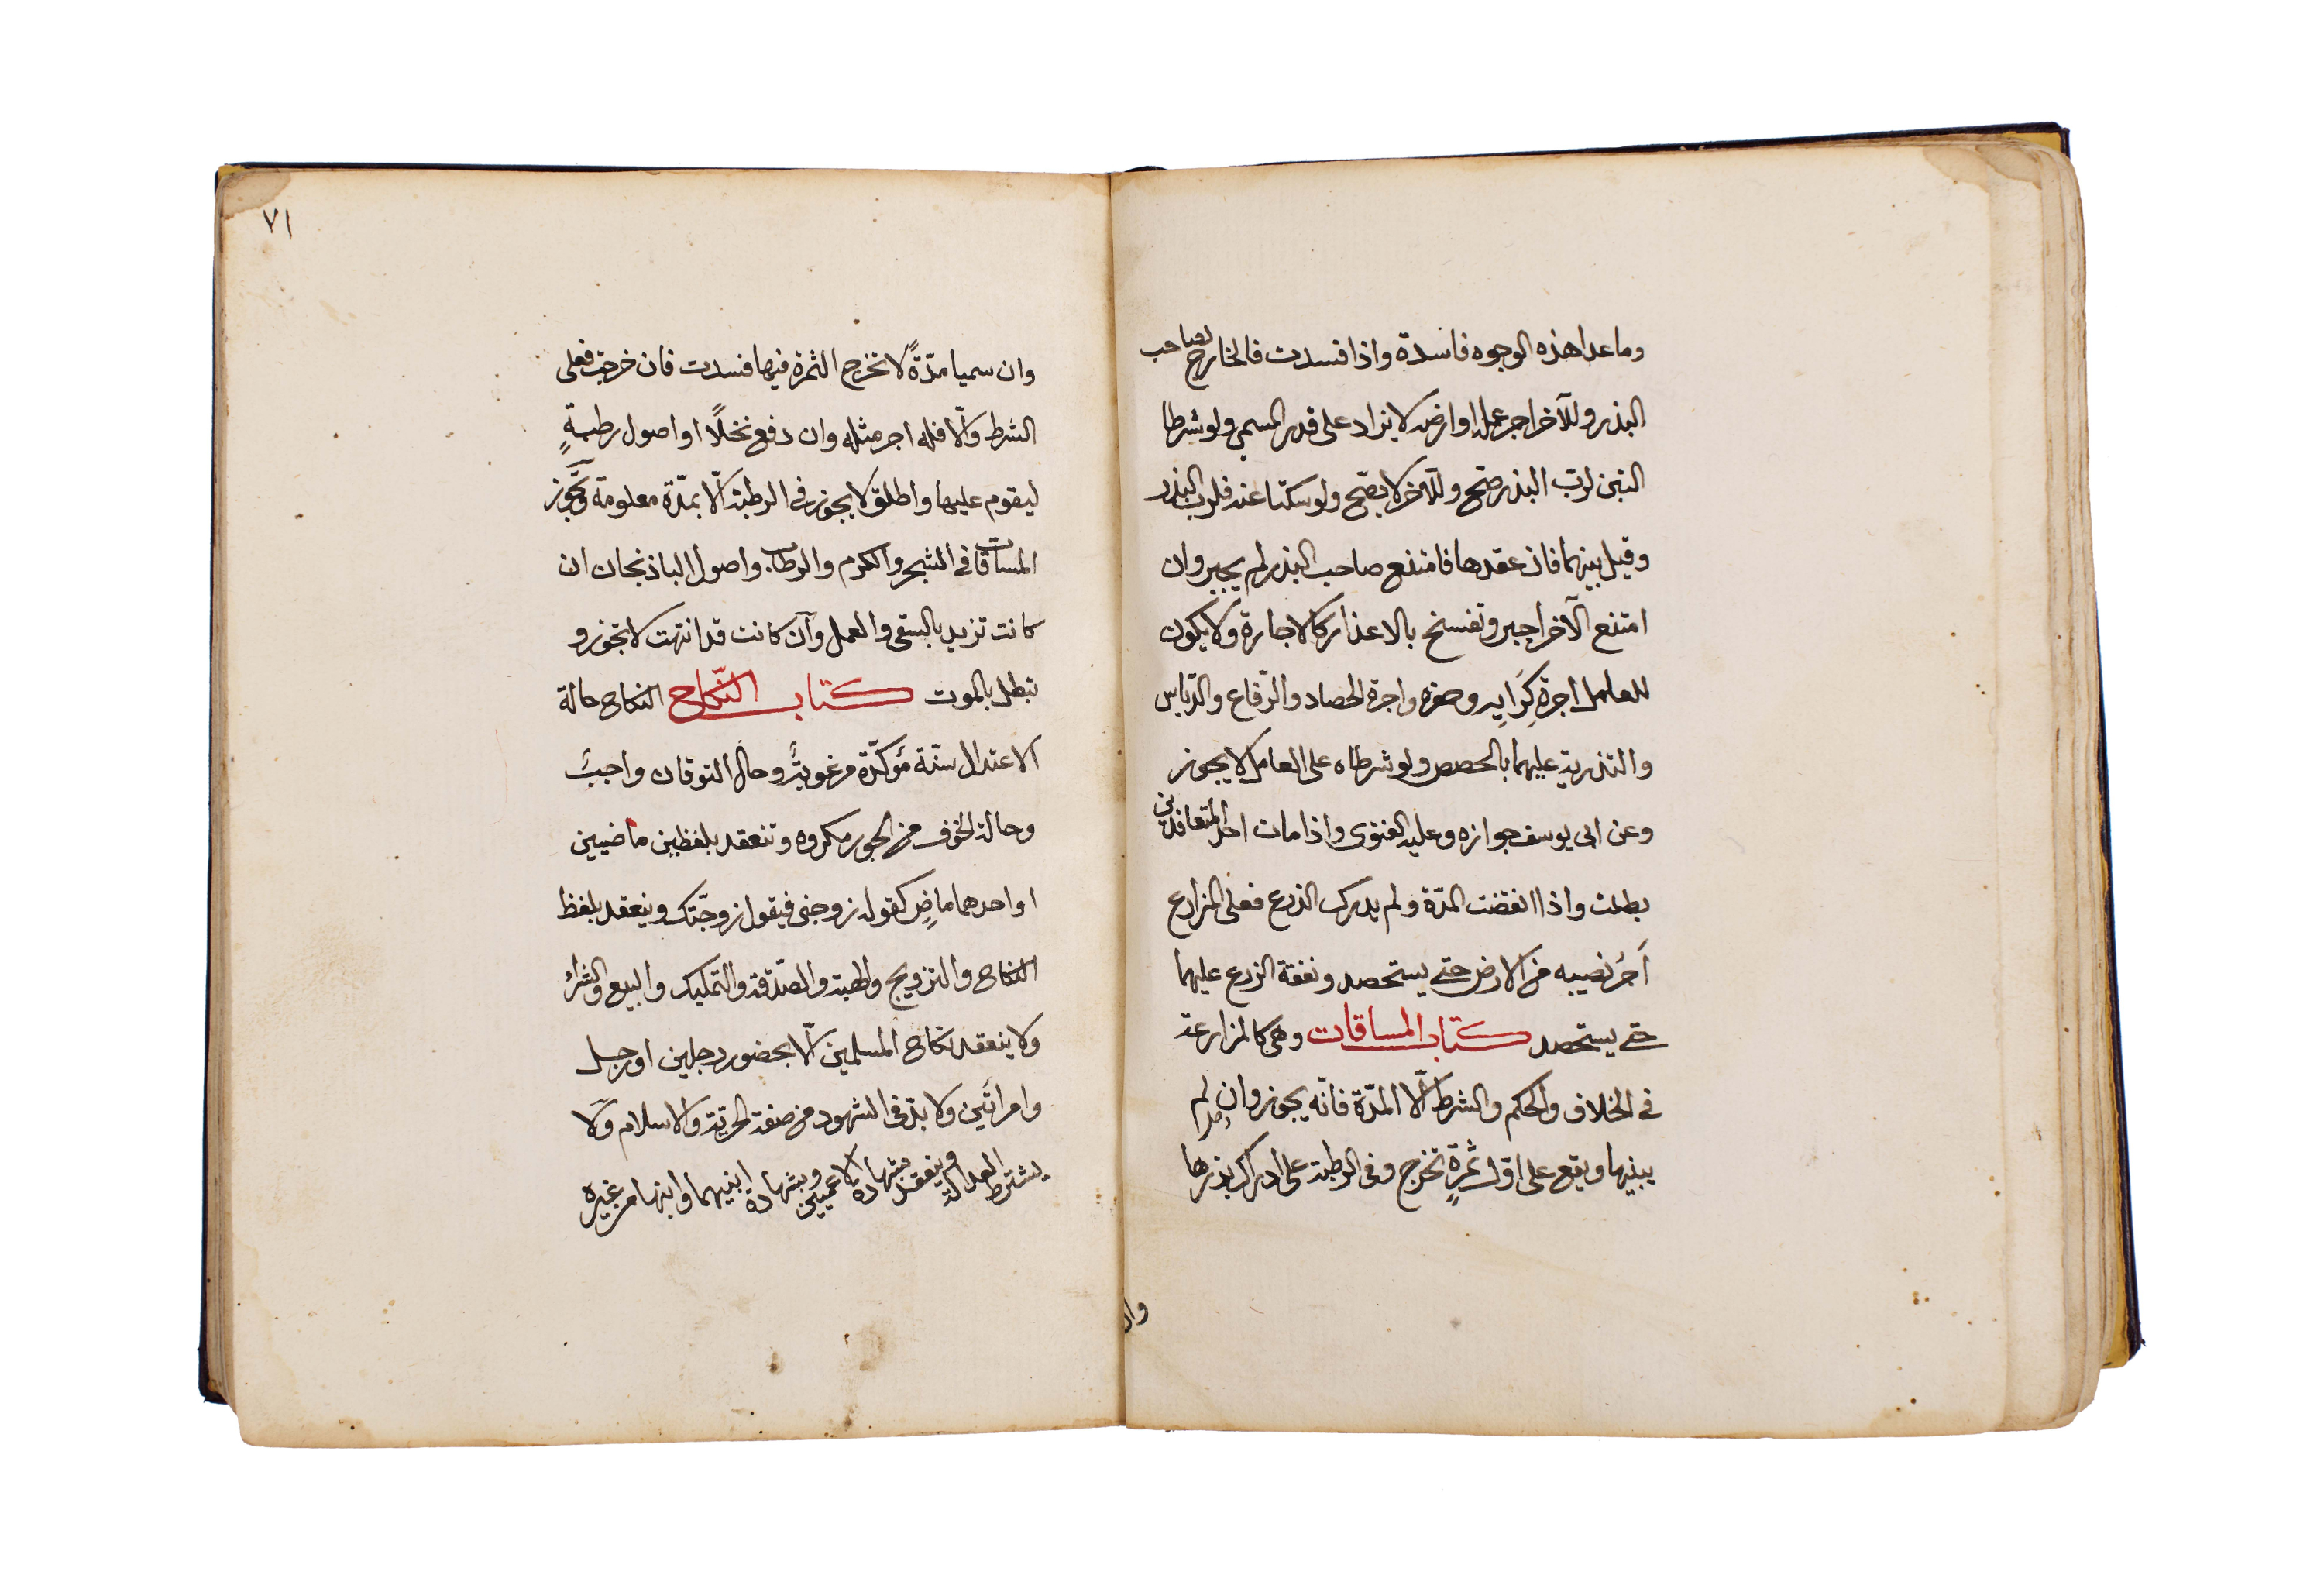 وما عدا هذه الوجوه فاسدة واذا فسدت فالخارج لصاحب
البذر وللآخر اجر عمله او ارضه لا يزاد على قدر المسمى ولو شرطا
التبن لربّ البذر صحّ وللآخر لا يصّح ولو سكتا عنه فلرب البذر
وقيل بينهما فان عقدها فامتنع صاحب البذر لم يجبر وان
امتنع الآخر اجبر وتفسخ بالاعذار كالاجارة ولا يكون
للعامل اجرة كِرَابِه وحفره واجرة الحصاد والرّفاع والدّياس
والتذرية عليهما بالحصص ولو شرطاه على العامل لا يجوز
وعن ابى يوسف جوازه وعليه الفتوى واذا مات احد المتعاقدين
بطلت واذا انقضت المدّة ولم يدرك الزرع فعلى المزارع
اَجرُ نصيبه من الارض حتى يستحصد ونفقة الزرع عليهما
حتى يستحصد كتاب المساقات وهى كالمزارعة
فى الخلاف والحكم والشرط الّا المدّة فانّه يجوز وان لم
يبنيها ويقع على اوّل ثمرةٍ تخرج وفى الرطبة على ادراك بذرها
وان
٧١
وان سميا مدّةً لا تخرج الثمرة فيها فسدت فان خرجت فعلى
الشرط والّا فله اجر مثله وان دفع نخلًا او اصول رطبةٍ
ليقوم عليها واطلق لا يجوز فى الرطبة الّا بمدّة معلومة وتجوز
المساقات فى الشجر والكرم والرطاب واصول الباذنجان ان
كانت تزيد بالسقى والعمل وان كانت قد انتهت لا تجوز و
تبطل بالموت كتاب النّكاح النكاح حالة
الاعتدال سنّة مؤكدّة مرغوبةٌ وحال التوقان واجبٌ
وحالة الخوف من الجور مكروه وتنعقد بلفظين ماضيين
او احدهما ماضٍ كقوله زوجنى فيقول زوجّتك وينعقد بلفظ
النكاح والتزويج والهبة والصّدقة والتمليك والبيع والشراء
ولا ينعقد نكاح المسلمين الّا بحضور رجلين او رجل
وامراتَين ولا بدّ فى الشهود من صفة الحريّة والاسلام ولا
يشترط العدالة وينعقد بشهادة الاعميين وبشهادة ابنيهما وابنها من غيره